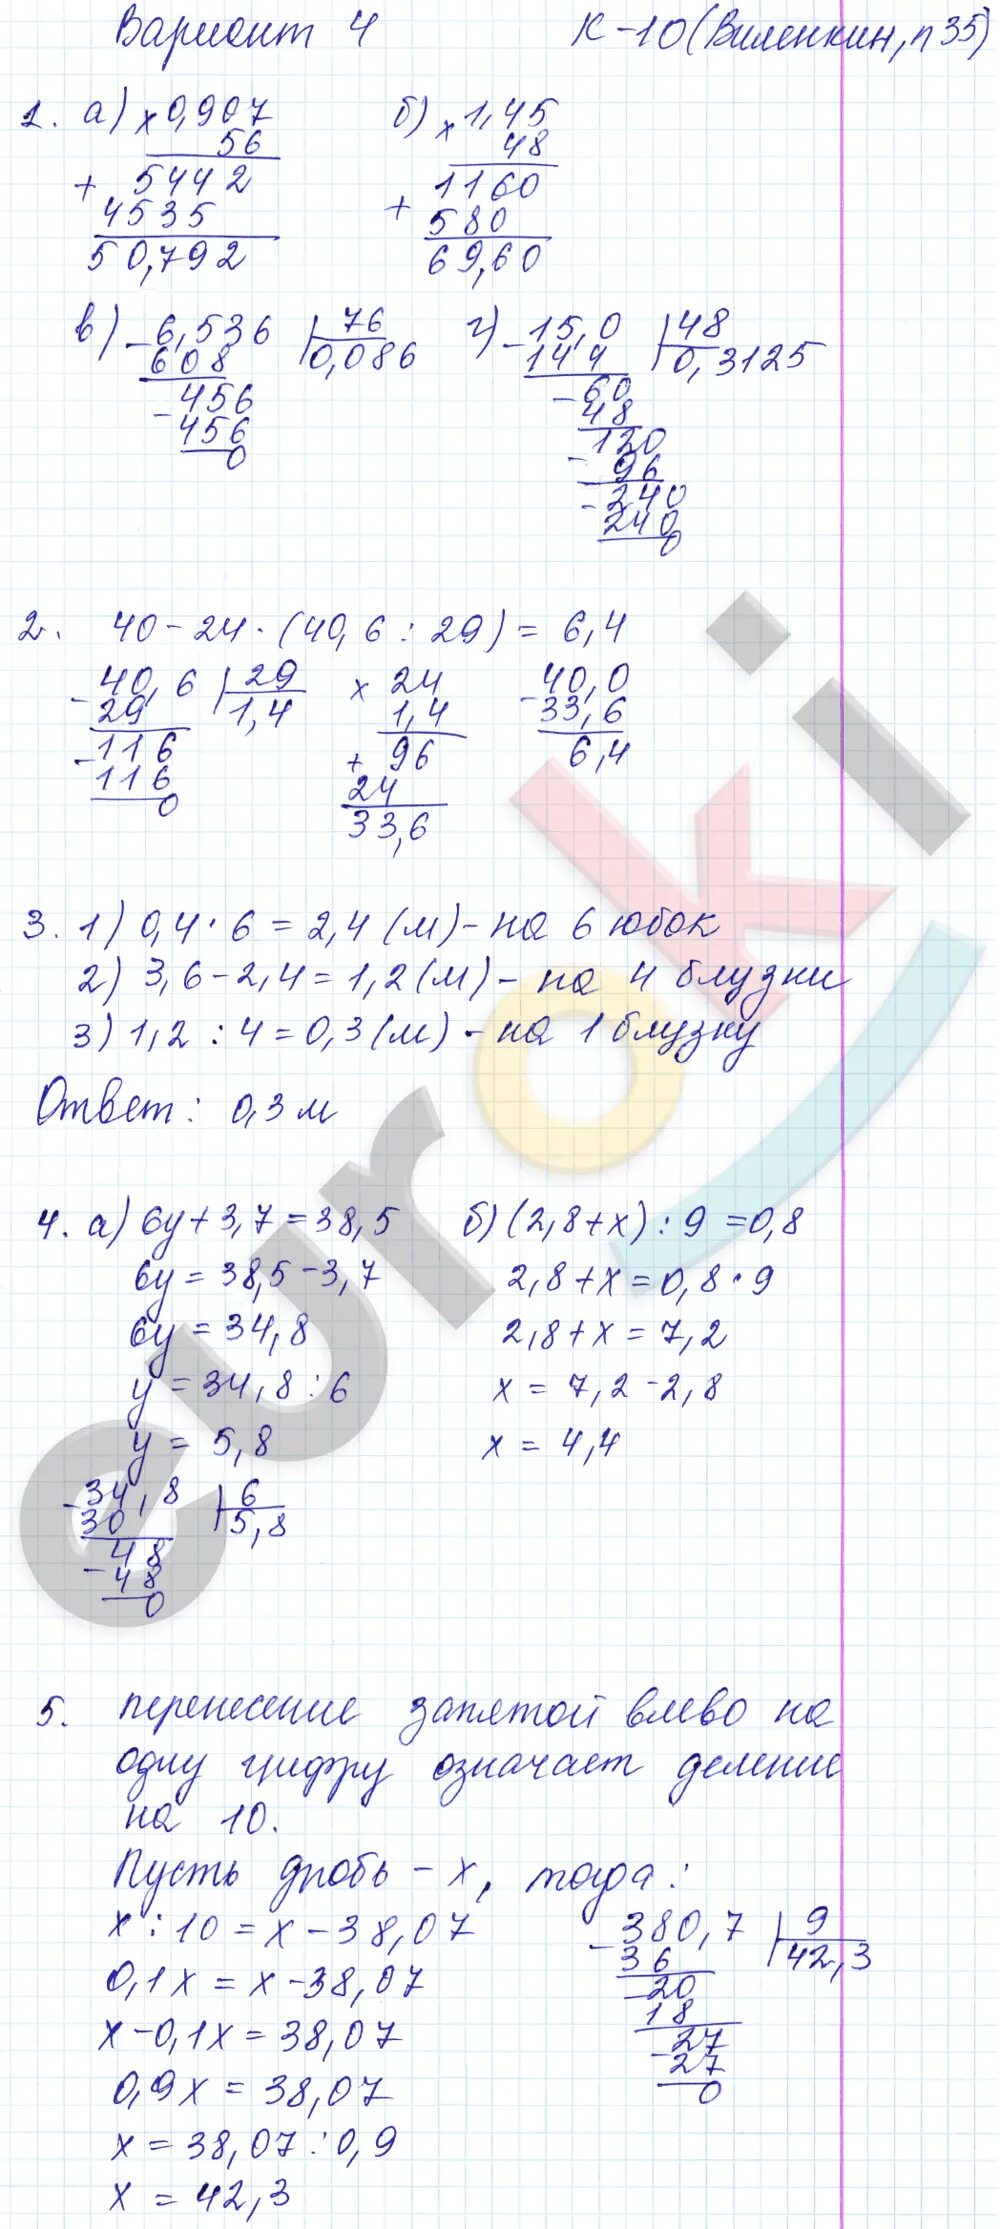 Вариант 4 К-10 (Виленкин, п 35)
1. а) × 0,907 б) × 1,45
56 48
+ 5442 + 1160
4535 580
50,792 69,60
в) - 6,536 76 г) - 15,0 48
608 0,086 144 0,3125
- 456 - 60
456 48
0 - 120
96
- 240
240
0
2. 40 - 24 · (40,6 : 29) = 6,4
- 40,6 29 × 24 - 40,0
29 1,4 1,4 33,6
- 116 + 96 6,4
116 24
0 33,6
3. 1) 0,4 · 6 = 2,4 (м) - на 6 юбок
2) 3,6 - 2,4 = 1,2 (м) - на 4 блузки
3) 1,2 : 4 = 0,3 (м) - на 1 блузку
Ответ: 0,3 м
4. а) 6y + 3,7 = 38,5 б) (2,8 + x) : 9 = 0,8
6y = 38,5 - 3,7 2,8 + x = 0,8 · 9
6y = 34,8 2,8 + x = 7,2
y = 34,8 : 6 x = 7,2 - 2,8
y = 5,8 x = 4,4
- 34,8 6
30 5,8
- 48
48
0
5. перенесение запятой влево на
одну цифру означает деление
на 10.
Пусть дробь - x, тогда:
x : 10 = x - 38,07 - 380,7 9
0,1x = x - 38,07 36 42,3
x - 0,1x = 38,07 - 20
0,9x = 38,07 18
x = 38,07 : 0,9 - 27
x = 42,3 27
0
euroki